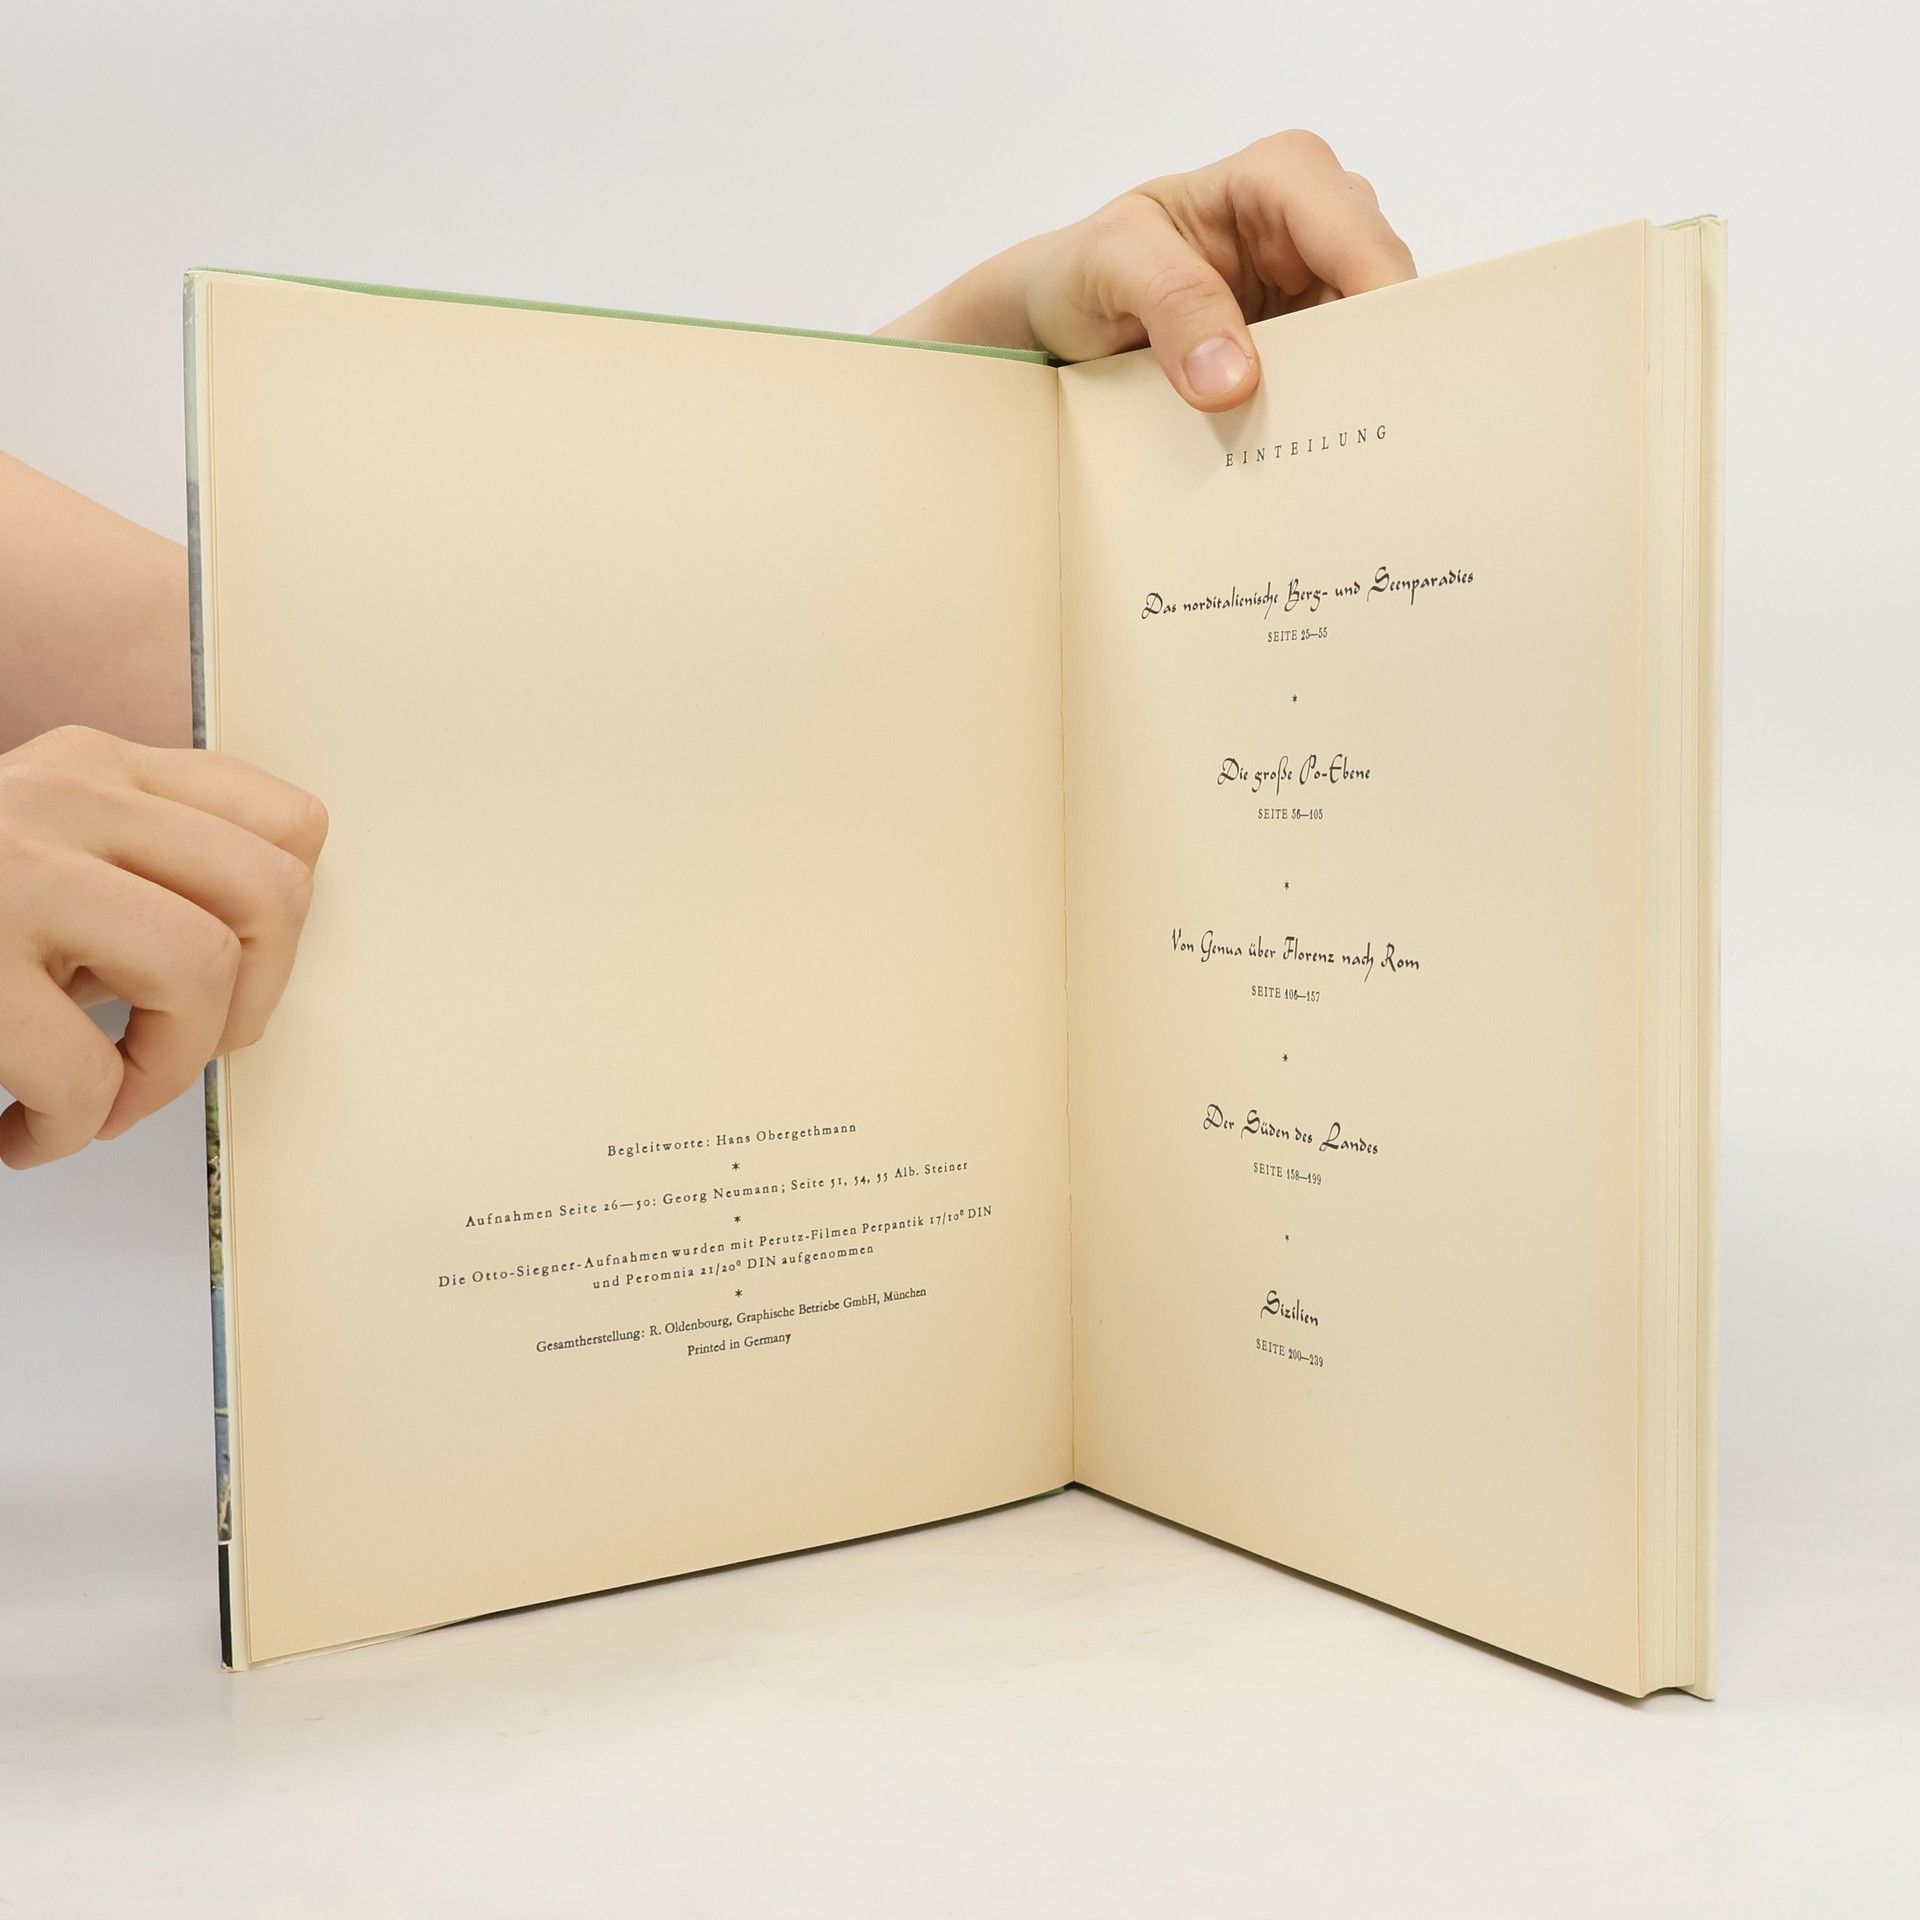 Begleitworte: Hans Obergethmann
*
Aufnahmen Seite 26—50: Georg Neumann; Seite 51, 54, 55 Alb. Steiner
*
Die Otto-Siegner-Aufnahmen wurden mit Perutz-Filmen Perpantik 17/10⁰ DIN
und Peromnia 21/20⁰ DIN aufgenommen
*
Gesamtherstellung: R. Oldenbourg, Graphische Betriebe GmbH, München
Printed in Germany
EINTEILUNG
Das norditalienische Berg- und Seenparadies
SEITE 25—55
*
Die große Po-Ebene
SEITE 56—105
*
Von Genua über Florenz nach Rom
SEITE 106—157
*
Der Süden des Landes
SEITE 158—199
*
Sizilien
SEITE 200—239